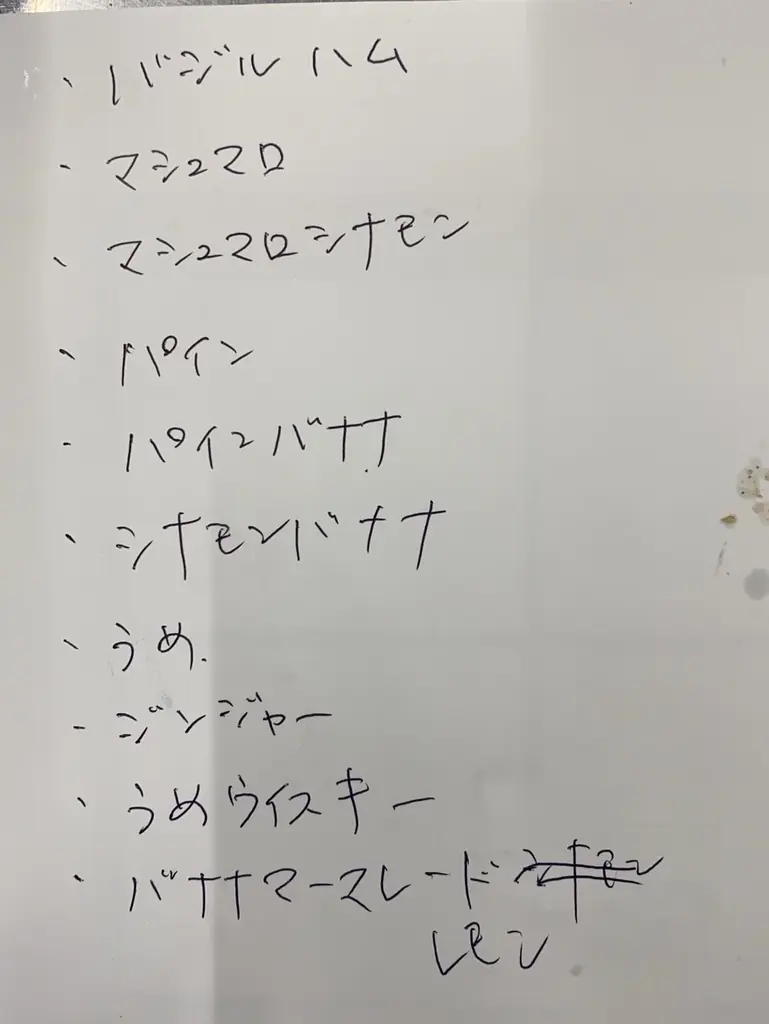 ・バジルハム
・マシュマロ
・マシュマロシナモン
・パイン
・パインバナナ
・シナモンバナナ
・うめ.
・ジンジャー
・うめウイスキー
・バナナマースレード シナモン
レモン